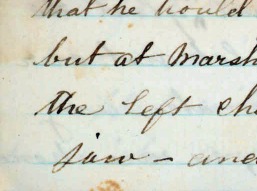 that he would
but at Marsh
the left che
jaw - and